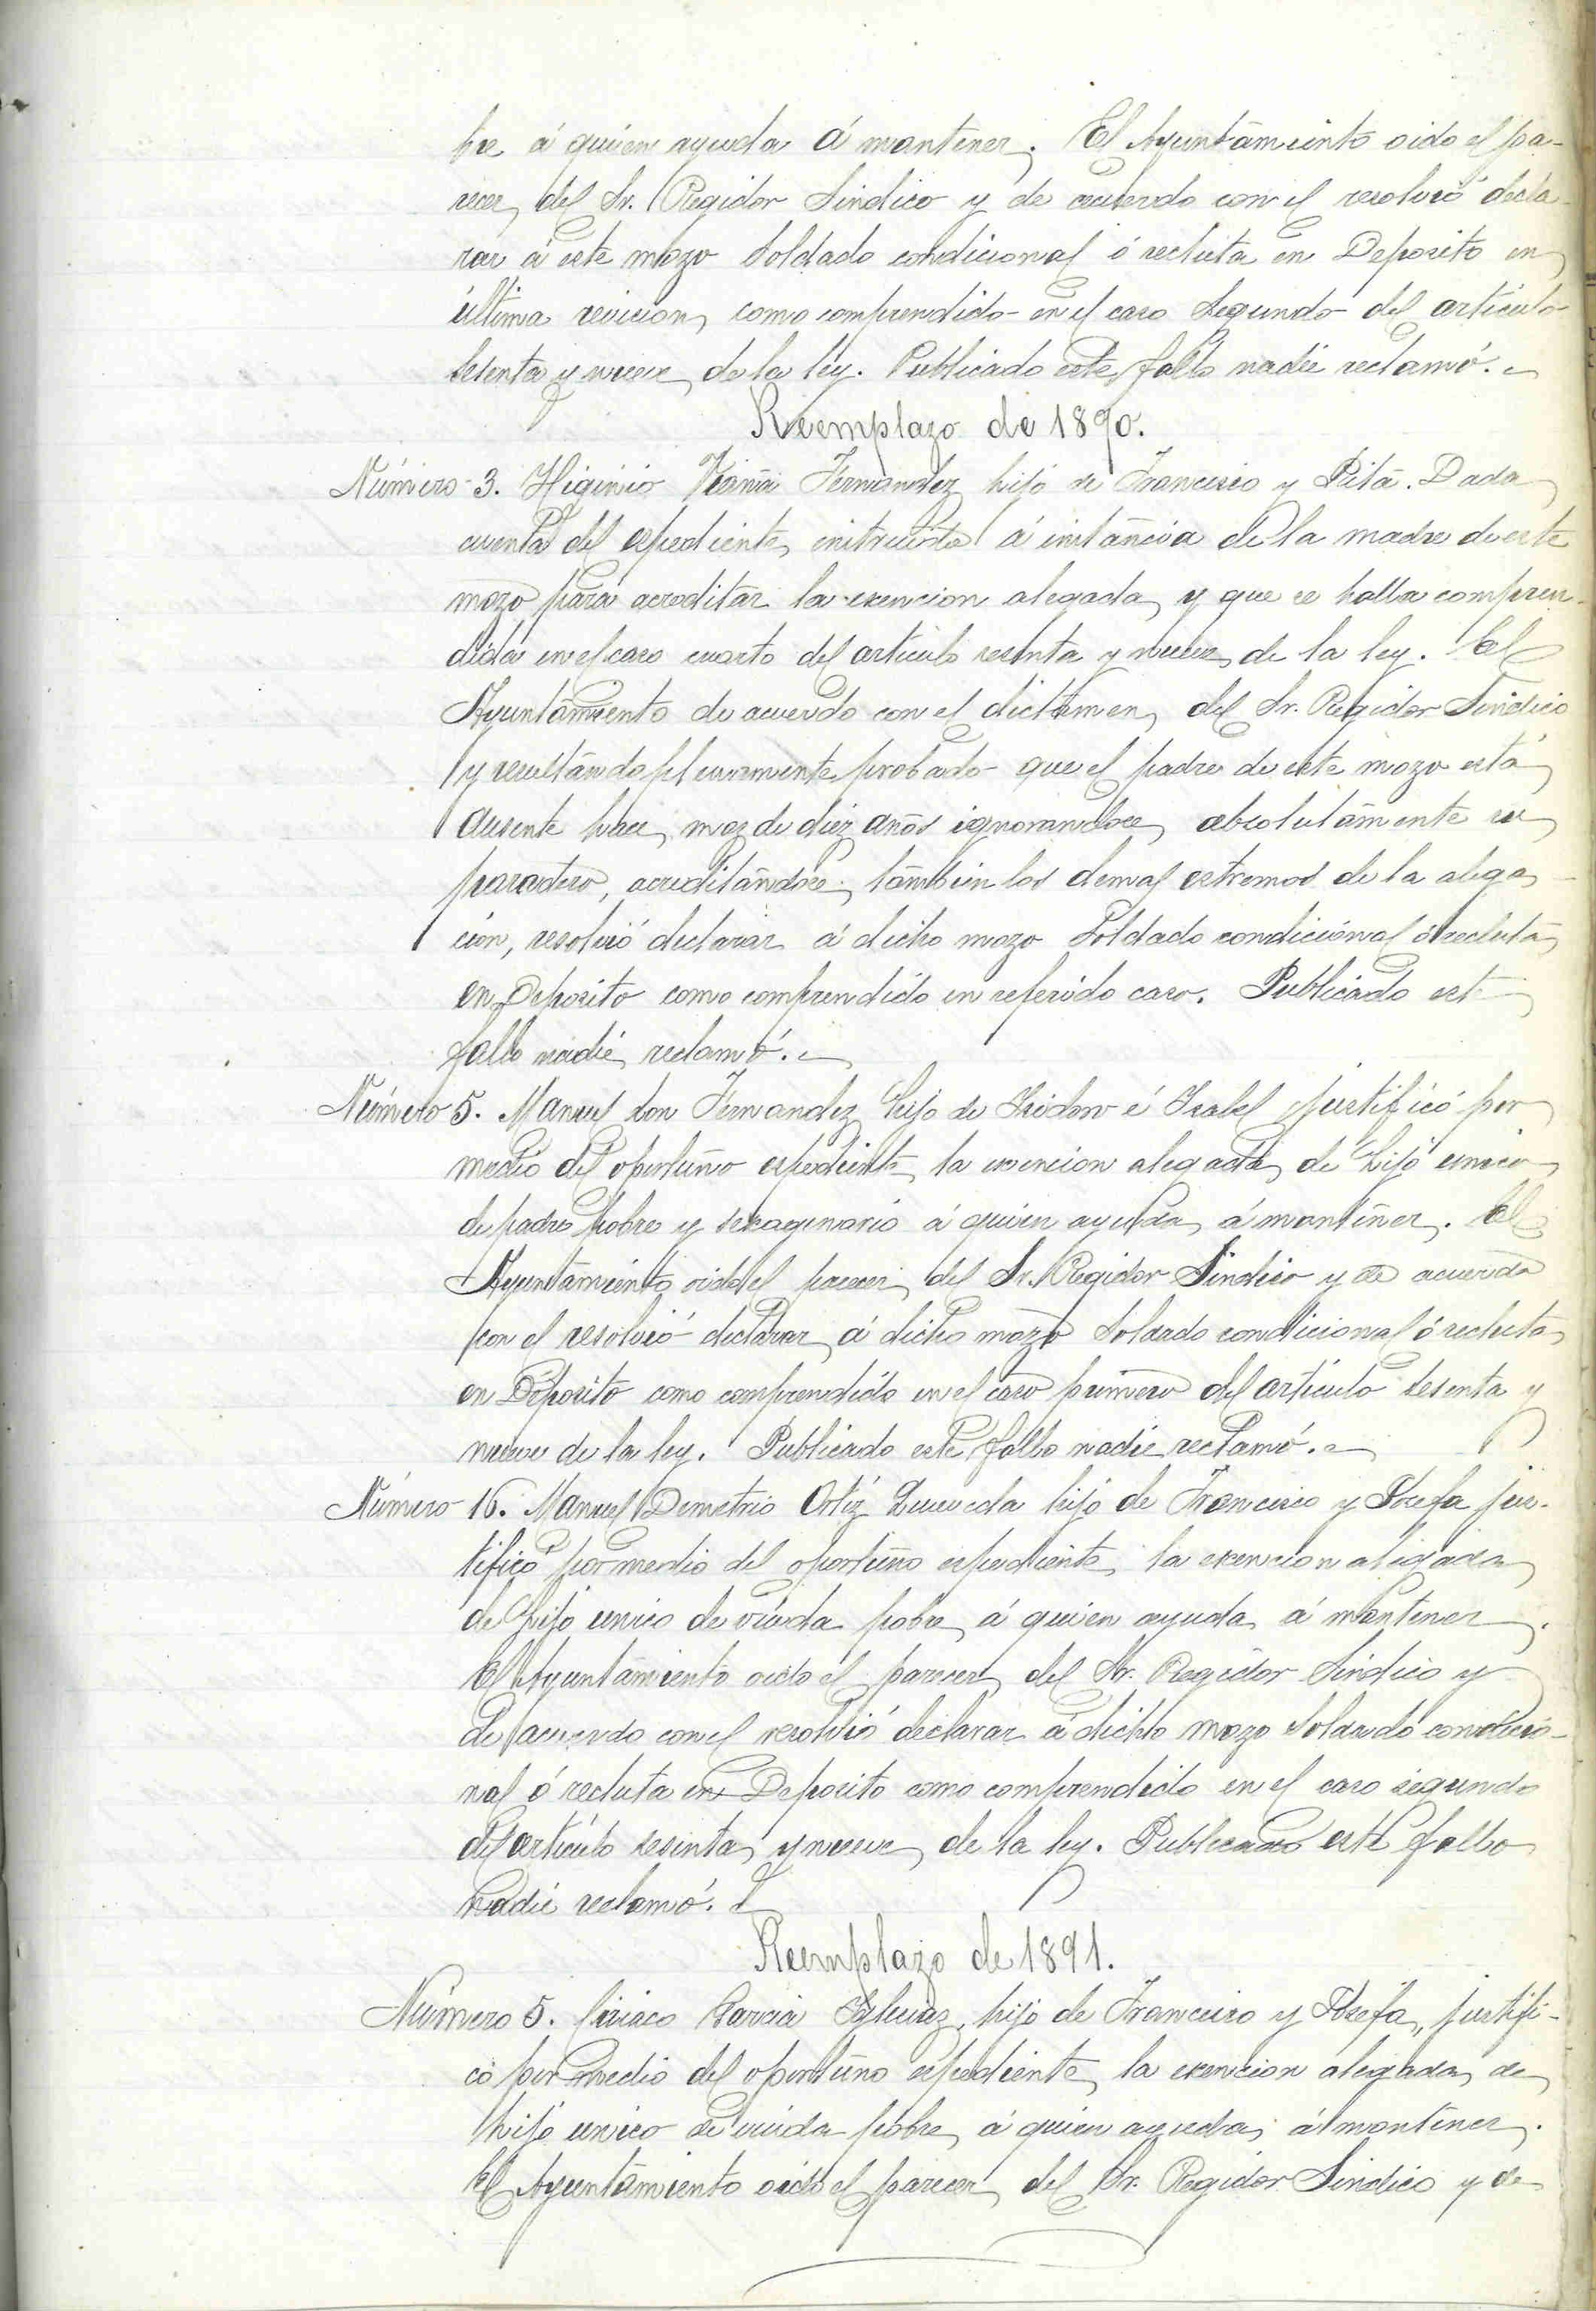 bre á quien ayuda á mantener. El Ayuntamiento oido el pa-
recer del Sr. Regidor Sindico y de acuerdo con el resolvió decla-
rar á este mozo Soldado condicional ó recluta en Deposito en
última revision, como comprendido en el caso Segundo del articulo
sesenta y nueve de la ley. Publicado este fallo nadie reclamó.
Reemplazo de 1890.
Número 3. Higinio Fernandez hijo de Francisco y Rita. Dada
cuenta del espediente instruido á instancia de la madre de este
mozo para acreditar la exencion alegada, y que se halla compren-
dida en el caso cuarto del articulo sesenta y nueve de la ley. El
Ayuntamiento de acuerdo con el dictamen del Sr. Regidor Sindico
y resultando plenamente probado que el padre de este mozo está
ausente hace mas de diez años ignorandose absolutamente su
paradero, acreditandose tambien los demas estremos de la alega-
cion, resolvió declarar á dicho mozo Soldado condicional ó recluta
en Deposito como comprendido en referido caso. Publicado este
fallo nadie reclamó.
Número 5. Manuel Fernandez hijo de Isidoro é Isabel justificó por
medio del oportuno espediente la exencion alegada de hijo unico
de padre pobre y sexagenario á quien ayuda á mantener. El
Ayuntamiento oido el parecer del Sr. Regidor Sindico y de acuerdo
con el resolvió declarar á dicho mozo Soldado condicional ó recluta
en Deposito como comprendido en el caso primero del articulo sesenta y
nueve de la ley. Publicado este fallo nadie reclamó.
Número 16. Manuel Demetrio Ortiz Queveda hijo de Francisco y Josefa jus-
tificó por medio del oportuno espediente la exencion alegada
de hijo unico de viuda pobre á quien ayuda á mantener.
El Ayuntamiento oido el parecer del Sr. Regidor Sindico y
de acuerdo con el resolvió declarar á dicho mozo Soldado condicio-
nal ó recluta en Deposito como comprendido en el caso segundo
del articulo sesenta y nueve de la ley. Publicado este fallo
nadie reclamó.
Reemplazo de 1891.
Número 5. Ciriaco Garcia Iglesias, hijo de Francisco y Josefa, justifi-
có por medio del oportuno espediente la exencion alegada de
hijo unico de viuda pobre á quien ayuda á mantener.
El Ayuntamiento oido el parecer del Sr. Regidor Sindico y de